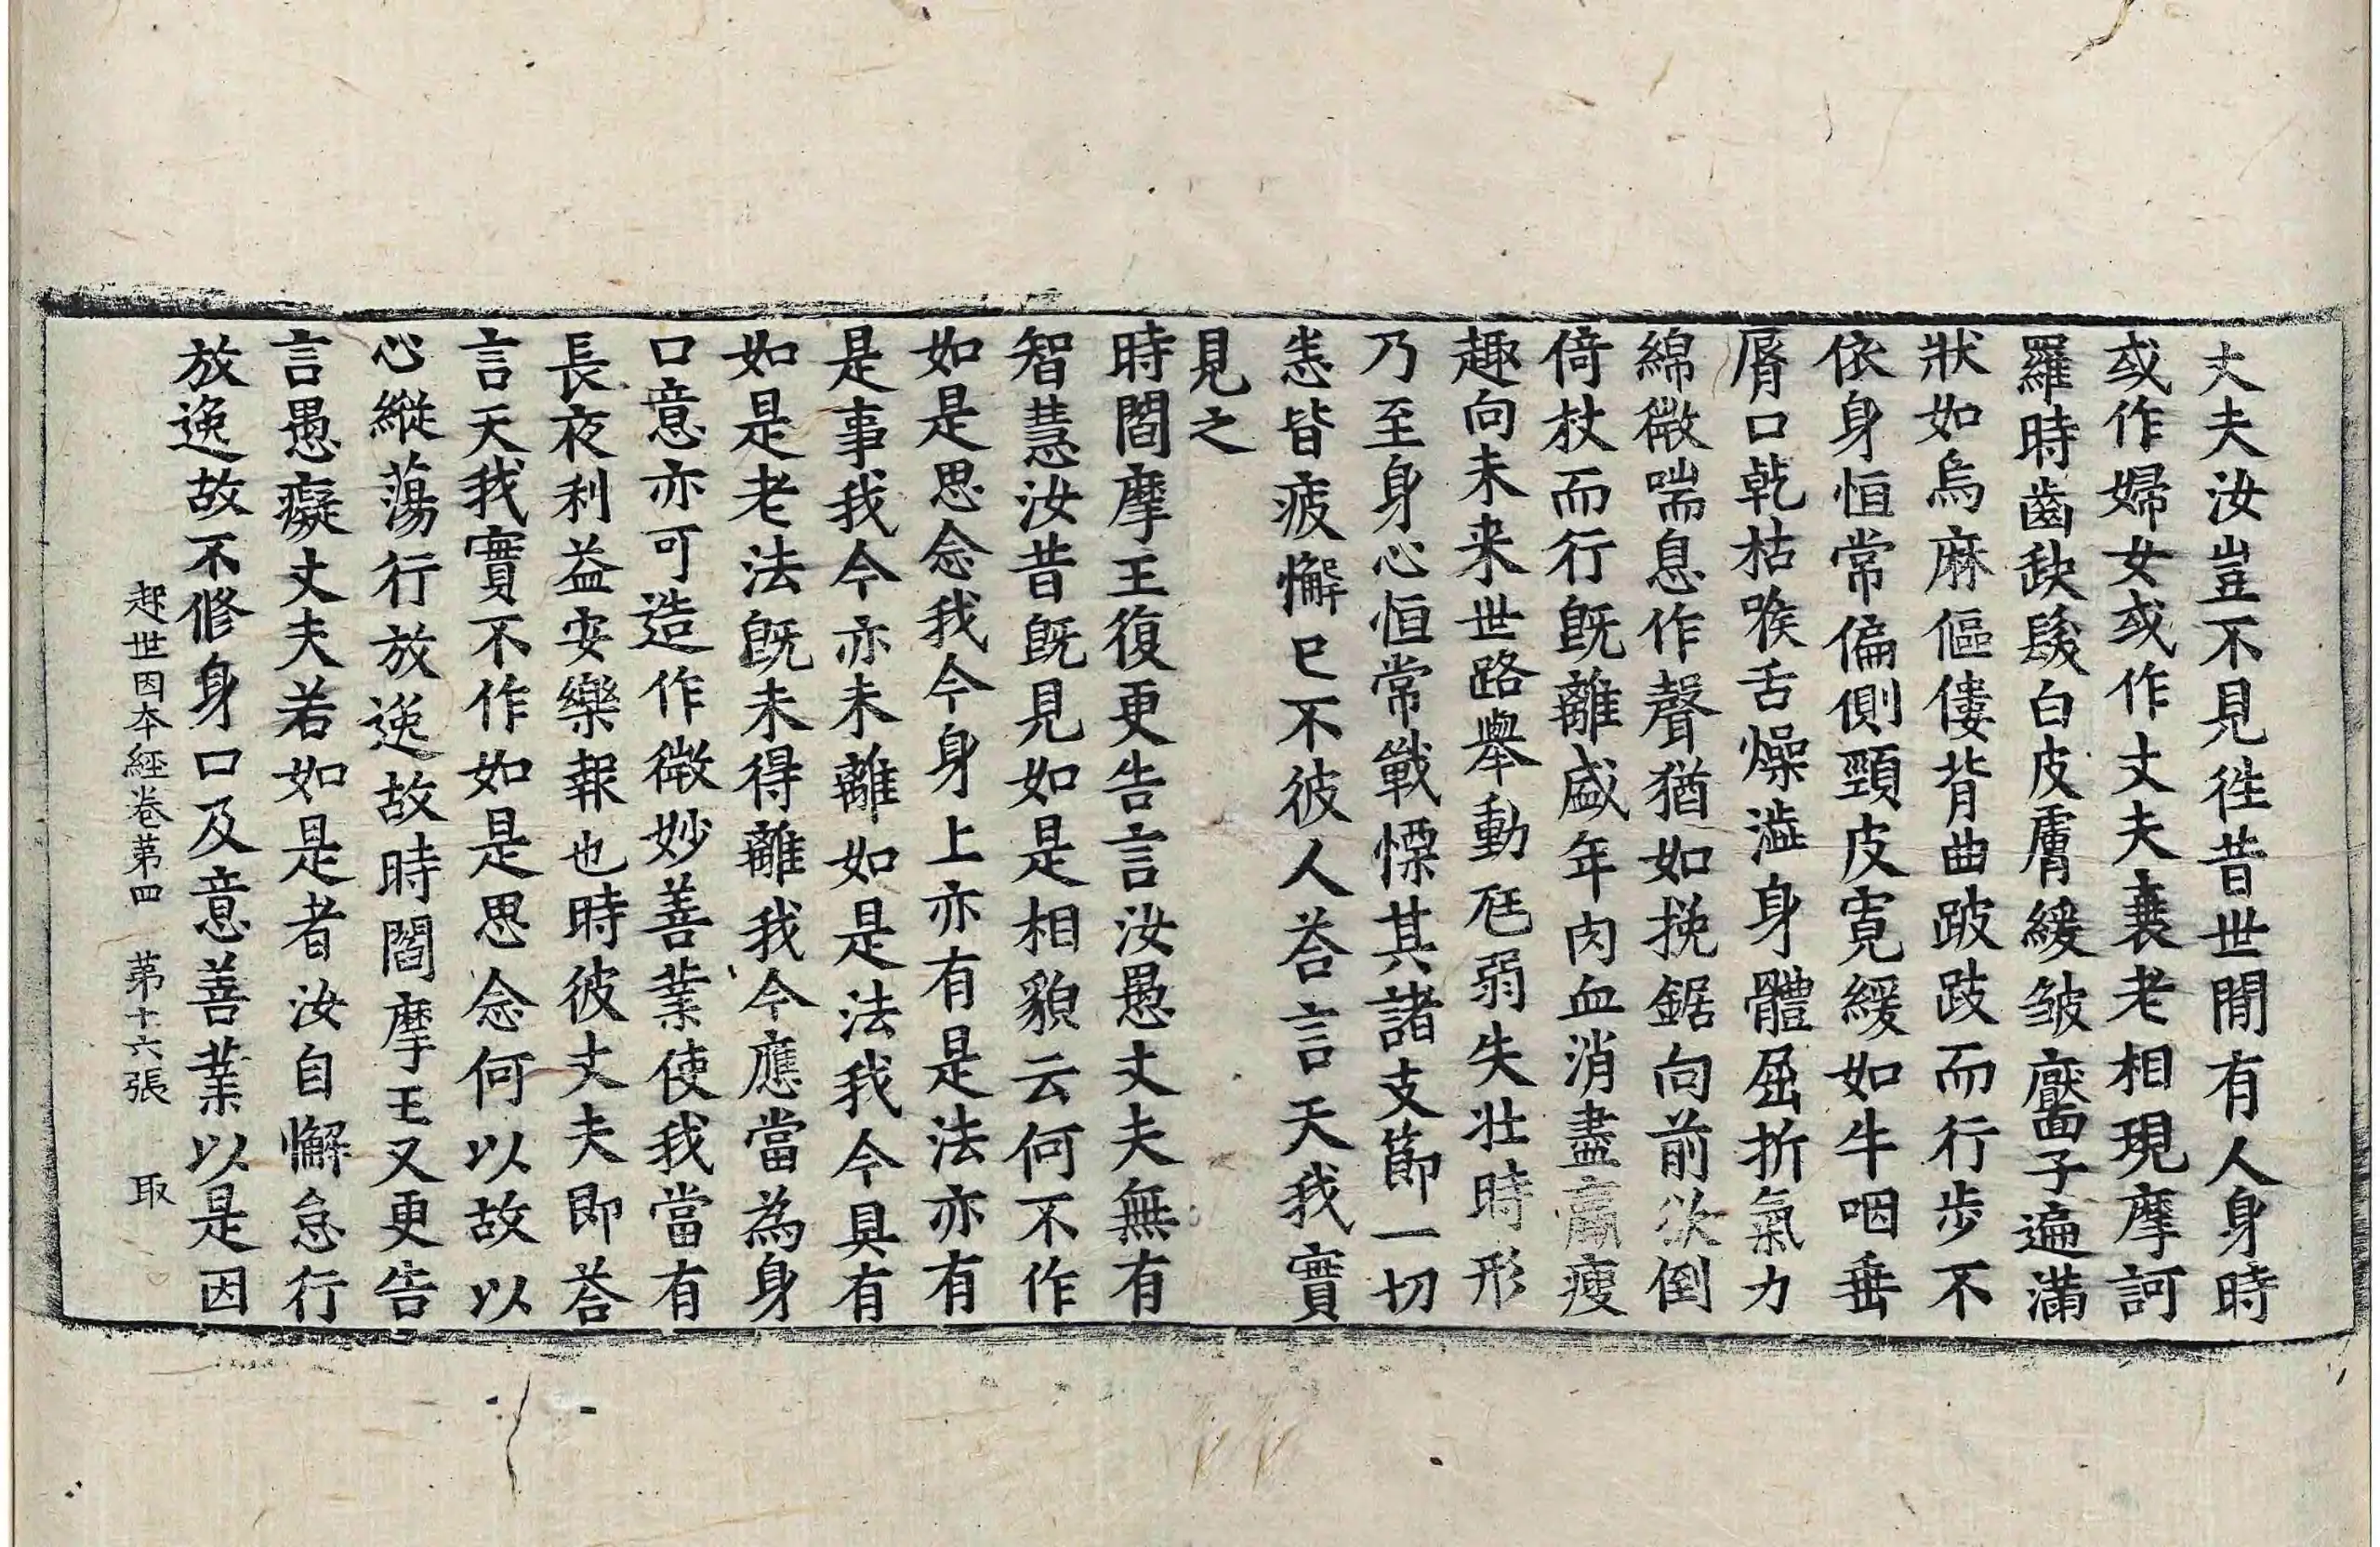 丈夫汝豈不見徃昔世間有人身時
或作婦女或作丈夫衰老相現摩訶
羅時齒缺髮白皮膚緩皺黶子遍滿
狀如烏麻傴僂背曲跛跂而行步不
依身恒常偏側頸皮寬緩如牛咽垂
脣口乾枯喉舌燥澁身體屈折氣力
綿微喘息作聲猶如挽鋸向前欲倒
倚杖而行旣離盛年肉血消盡羸瘦
趣向未来世路舉動尫弱失壯時形
乃至身心恒常戰慄其諸支節一切
悉皆疲懈巳不彼人荅言天我實
見之
時閻摩王復更告言汝愚丈夫無有
智慧汝昔旣見如是相貌云何不作
如是思念我今身上亦有是法亦有
是事我今亦未離如是法我今具有
如是老法旣未得離我今應當為身
口意亦可造作微妙善業使我當有
長夜利益安樂報也時彼丈夫即荅
言天我實不作如是思念何以故以
心縱蕩行放逸故時閻摩王又更告
言愚癡丈夫若如是者汝自懈怠行
放逸故不修身口及意善業以是因
起世因本經卷第四 第十六張 取